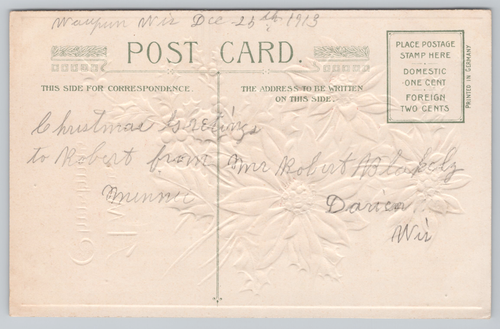 Waupun Wis Dec-25th 1913
POST CARD.
PLACE POSTAGE
STAMP HERE
DOMESTIC
ONE CENT
FOREIGN
TWO CENTS
PRINTED IN GERMANY
THIS SIDE FOR CORRESPONDENCE.
THE ADDRESS TO BE WRITTEN
ON THIS SIDE.
Christmas Greetings
to Robert from
Minnie
Mr Robert Blakely
Darien
Wis